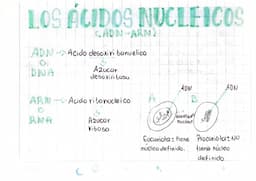 LOS ÁCIDOS NUCLEICOS
(ADN-ARN)
ADN → Acido desoxirribonucleico
O
DNA
Azucar
desoxiribosa
ARN → Acido ribonucleico
O
RNA
Azucar
Ribosa
A
B
ADN
ADN
Eucariotas: tiene
núcleo definido.
Procariotas: NO
tiene núcleo
definido.